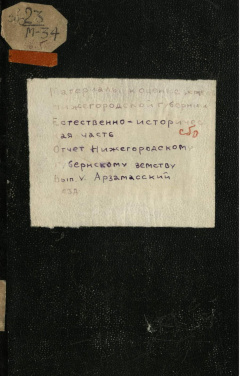 23
М-34
Материалы к оценке земель
Нижегородской губернии
Естественно-историчес
ая часть
Отчет Нижегородскому
губернскому земству
Вып V. Арзамасский
уезд